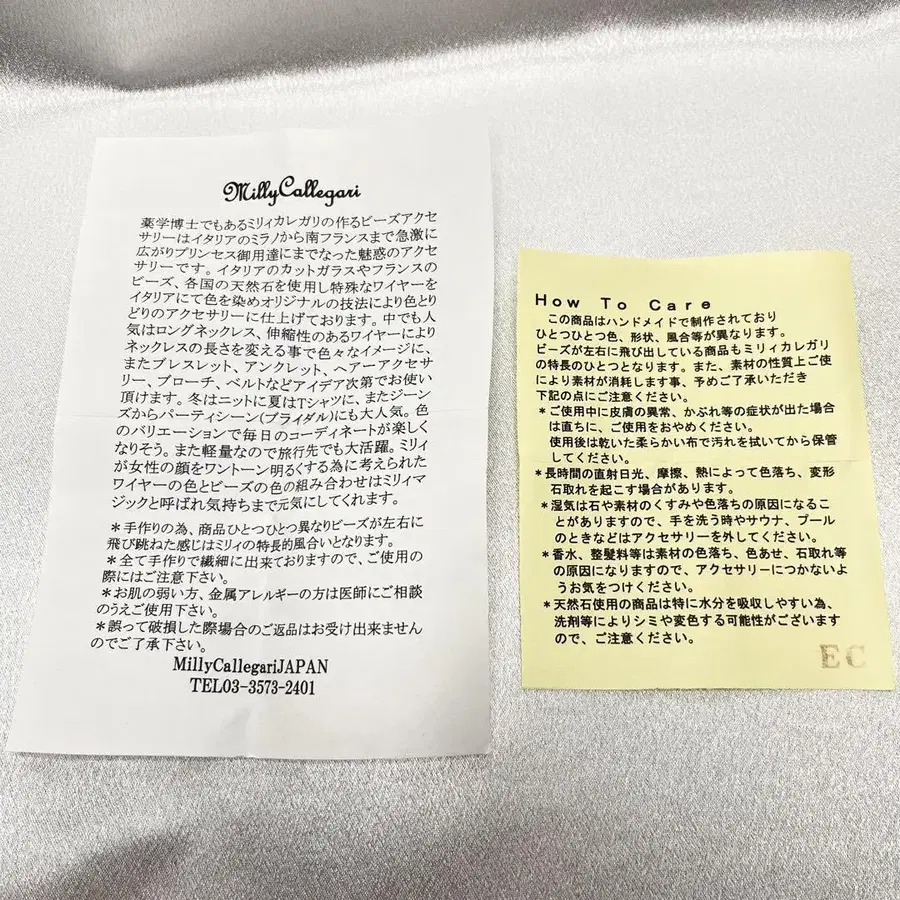 MillyCallegari
薬学博士でもあるミリィカレガリの作るビーズアクセ
サリーはイタリアのミラノから南フランスまで急激に
広がりプリンセス御用達にまでなった魅惑のアクセ
サリーです。イタリアのカットガラスやフランスの
ビーズ、各国の天然石を使用し特殊なワイヤーを
イタリアにて色を染めオリジナルの技法により色とり
どりのアクセサリーに仕上げております。中でも人
気はロングネックレス、伸縮性のあるワイヤーにより
ネックレスの長さを変える事で色々なイメージに、
またブレスレット、アンクレット、ヘアーアクセサ
リー、ブローチ、ベルトなどアイデア次第でお使い
頂けます。冬はニットに夏はTシャツに、またジーン
ズからパーティシーン(ブライダル)にも大人気。色
のバリエーションで毎日のコーディネートが楽しく
なりそう。また軽量なので旅行先でも大活躍。ミリィ
が女性の顔をワントーン明るくする為に考えられた
ワイヤーの色とビーズの色の組み合わせはミリィマ
ジックと呼ばれ気持ちまで元気にしてくれます。
＊手作りの為、商品ひとつひとつ異なりビーズが左右に
飛び跳ねた感じはミリィの特長的風合いとなります。
＊全て手作りで繊細に出来ておりますので、ご使用の
際にはご注意下さい。
＊お肌の弱い方、金属アレルギーの方は医師にご相談
のうえご使用下さい。
＊誤って破損した際場合のご返品はお受け出来ません
のでご了承下さい。
MillyCallegariJAPAN
TEL03-3573-2401
How To Care
この商品はハンドメイドで制作されており
ひとつひとつ色、形状、風合等が異なります。
ビーズが左右に飛び出している商品もミリィカレガリ
の特長のひとつとなります。また、素材の性質上ご使
により素材が消耗します事、予めご了承いただき
下記の点にご注意ください。
＊ご使用中に皮膚の異常、かぶれ等の症状が出た場合
は直ちに、ご使用をおやめください。
使用後は乾いた柔らかい布で汚れを拭いてから保管
してください。
＊長時間の直射日光、摩擦、熱によって色落ち、変形
石取れを起こす場合があります。
＊湿気は石や素材のくすみや色落ちの原因になるこ
とがありますので、手を洗う時やサウナ、プール
のときなどはアクセサリーを外してください。
＊香水、整髪料等は素材の色落ち、色あせ、石取れ等
の原因になりますので、アクセサリーにつかないよ
うお気をつけください。
＊天然石使用の商品は特に水分を吸収しやすい為、
洗剤等によりシミや変色する可能性がございます
ので、ご注意ください。
EC